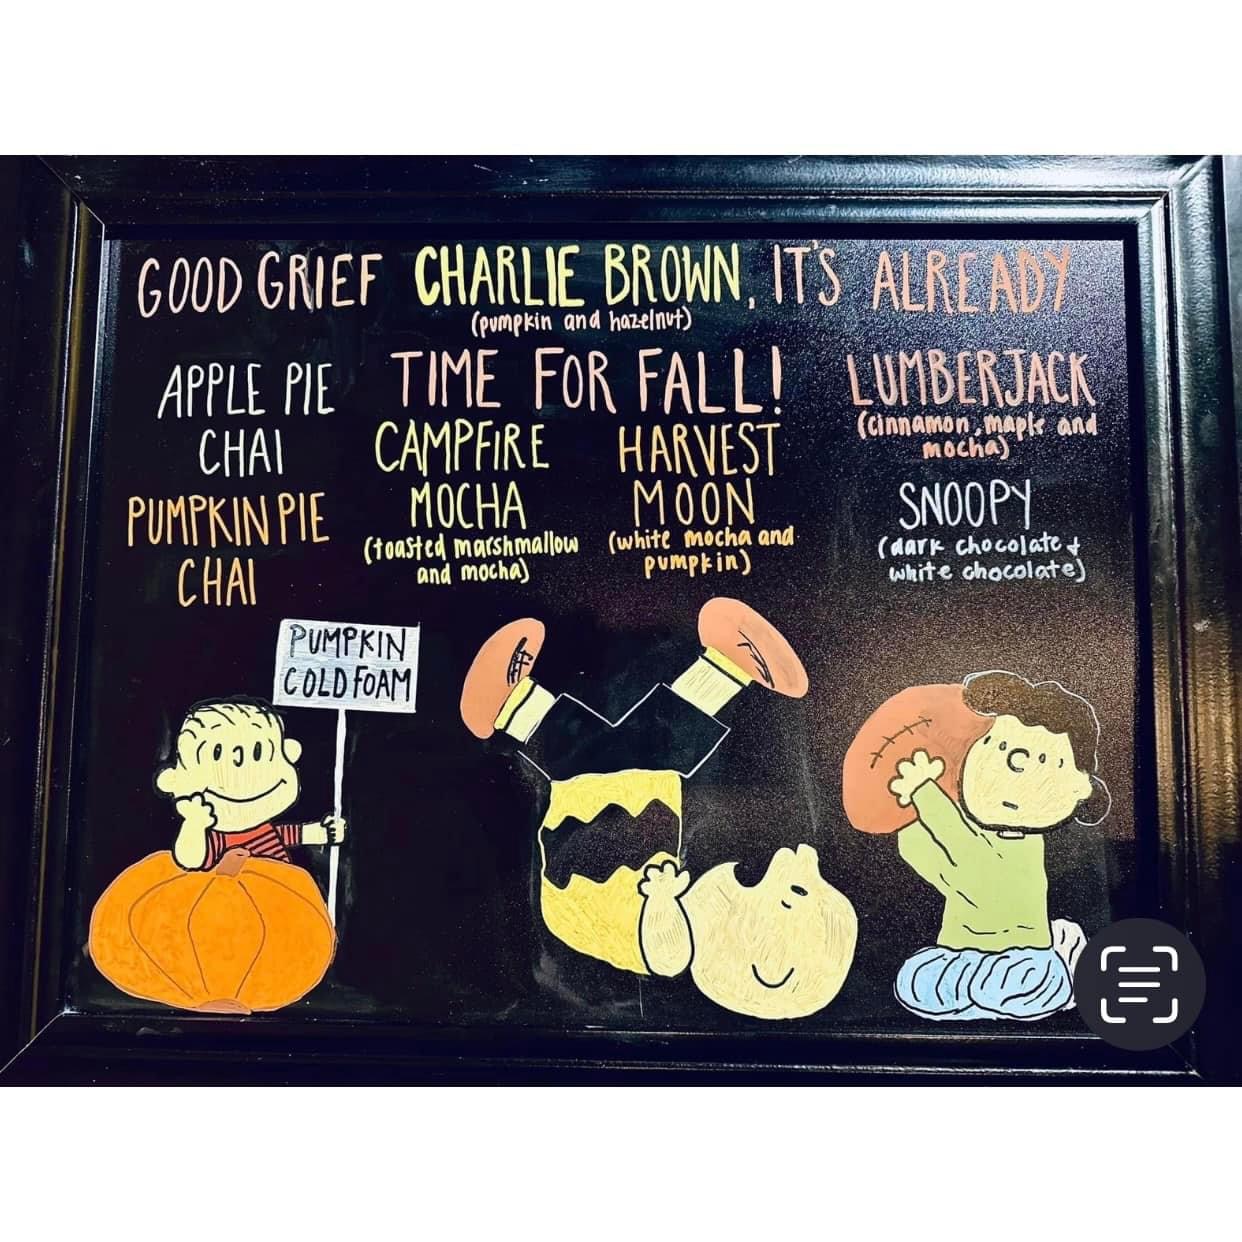 GOOD GRIEF CHARLIE BROWN, IT'S ALREADY
(pumpkin and hazelnut)
TIME FOR FALL!
APPLE PIE
CHAI
PUMPKIN PIE
CHAI
CAMPFIRE
MOCHA
(toasted marshmallow
and mocha)
HARVEST
MOON
(white mocha and
pumpkin)
LUMBERJACK
(cinnamon, maple and
mocha)
SNOOPY
(dark chocolate +
white chocolate)
PUMPKIN
COLD FOAM